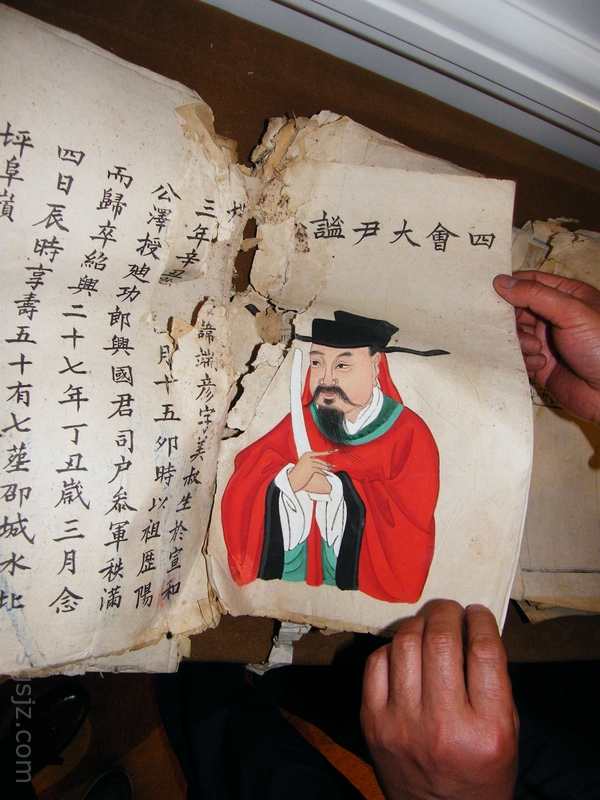 四會大尹謚
諱端彥字美叔生於宣和
三年辛丑 月十五卯時以祖歷陽
公澤授廸功郎興國君司户叅軍秩滿
而歸卒紹興二十七年丁丑歲三月念
四日辰時享壽五十有七塟邵城水北
坪阜嶺
jsjz.com